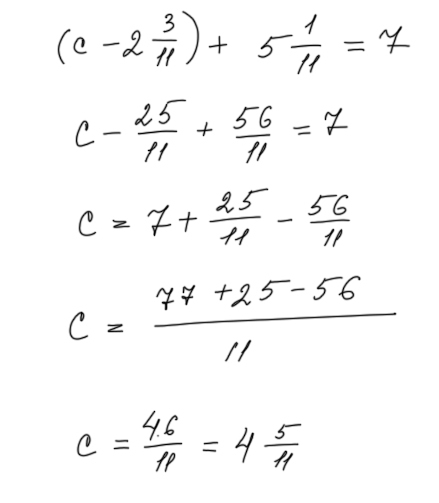 (c - 2 3/11) + 5 1/11 = 7
c - 25/11 + 56/11 = 7
c = 7 + 25/11 - 56/11
c = (77 + 25 - 56)/11
c = 46/11 = 4 5/11